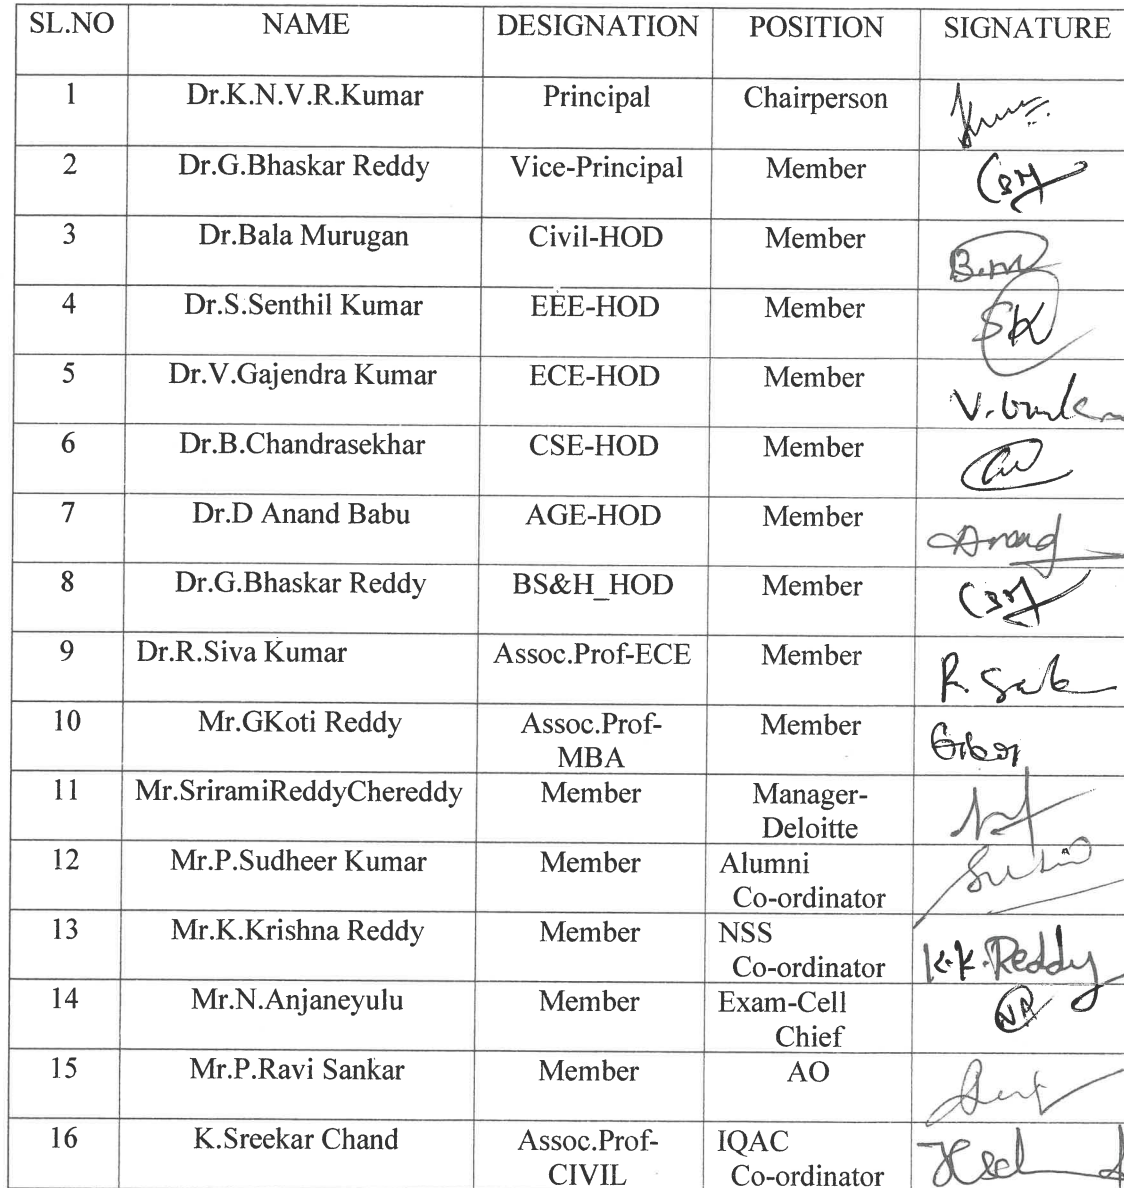 SL.NO NAME DESIGNATION POSITION SIGNATURE
1 Dr.K.N.V.R.Kumar Principal Chairperson
2 Dr.G.Bhaskar Reddy Vice-Principal Member
3 Dr.Bala Murugan Civil-HOD Member B.M
4 Dr.S.Senthil Kumar EEE-HOD Member SK
5 Dr.V.Gajendra Kumar ECE-HOD Member
6 Dr.B.Chandrasekhar CSE-HOD Member
7 Dr.D Anand Babu AGE-HOD Member Anand
8 Dr.G.Bhaskar Reddy BS&H_HOD Member
9 Dr.R.Siva Kumar Assoc.Prof-ECE Member
10 Mr.GKoti Reddy Assoc.Prof- Member
MBA
11 Mr.SriramiReddyChereddy Member Manager-
Deloitte
12 Mr.P.Sudheer Kumar Member Alumni
Co-ordinator
13 Mr.K.Krishna Reddy Member NSS
Co-ordinator K.K.Reddy
14 Mr.N.Anjaneyulu Member Exam-Cell NA
Chief
15 Mr.P.Ravi Sankar Member AO
16 K.Sreekar Chand Assoc.Prof- IQAC
CIVIL Co-ordinator